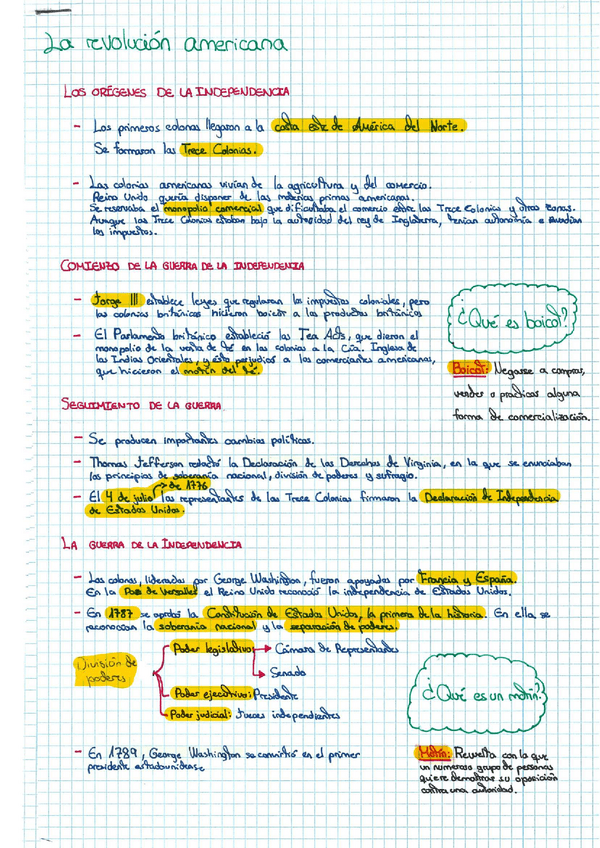 La revolución americana
LOS ORÍGENES DE LA INDEPENDENCIA
- Los primeros colonos llegaron a la costa este de América del Norte.
Se formaron las Trece Colonias.
- Las colonias americanas vivían de la agricultura y del comercio.
Reino Unido quería disponer de las materias primas americanas.
Se reservaba el monopolio comercial que dificultaba el comercio entre las Trece Colonias y otras zonas.
Aunque las Trece Colonias estaban bajo la autoridad del rey de Inglaterra, tenían autonomía e
los impuestos.
COMIENZO DE LA GUERRA DE LA INDEPENDENCIA
- Jorge III establece leyes que regularan los impuestos coloniales, pero
los colonos británicos hicieron boicot a los productos británicos
- El Parlamento británico estableció las Tea Acts, que dieron el
monopolio de la venta de té en las colonias a la Cía. Inglesa de
las Indias Orientales, y esto perjudicó a los comerciantes americanos,
que hicieron el motín del té.
¿Qué es boicot?
Boicot: Negarse a comprar,
vender o practicar alguna
forma de comercialización.
SEGUIMIENTO DE LA GUERRA
- Se producen importantes cambios políticos.
- Thomas Jefferson redactó la Declaración de los Derechos de Virginia, en la que se enunciaban
los principios de soberanía nacional, división de poderes y sufragio.
- El 4 de julio de 1776 los representantes de las Trece Colonias firmaron la Declaración de Independencia
de Estados Unidos.
LA GUERRA DE LA INDEPENDENCIA
- Los colonos, liderados por George Washington, fueron apoyados por Francia y España.
En la Paz de Versalles el Reino Unido reconoció la independencia de Estados Unidos.
- En 1787 se aprobó la Constitución de Estados Unidos, la primera de la historia. En ella se
reconocían la soberanía nacional y la separación de poderes.
División de
poderes
Poder legislativo → Cámara de Representantes
→ Senado
Poder ejecutivo: Presidente
Poder judicial: Jueces independientes
¿Qué es un motín?
Motín: Revuelta con la que
un numeroso grupo de personas
quiere demostrar su oposición
contra una autoridad.
- En 1789, George Washington se convirtió en el primer
presidente estadounidense